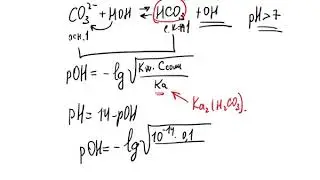 CO₃²⁻ + HOH ⇄ HCO₃⁻ + OH⁻ pH>7
осн.1
pOH = -lg√(Kw · Cсоли / Ka)
Ka₂(H₂CO₃).
pH = 14-pOH
pOH = -lg√(10⁻¹⁴ · 0,1